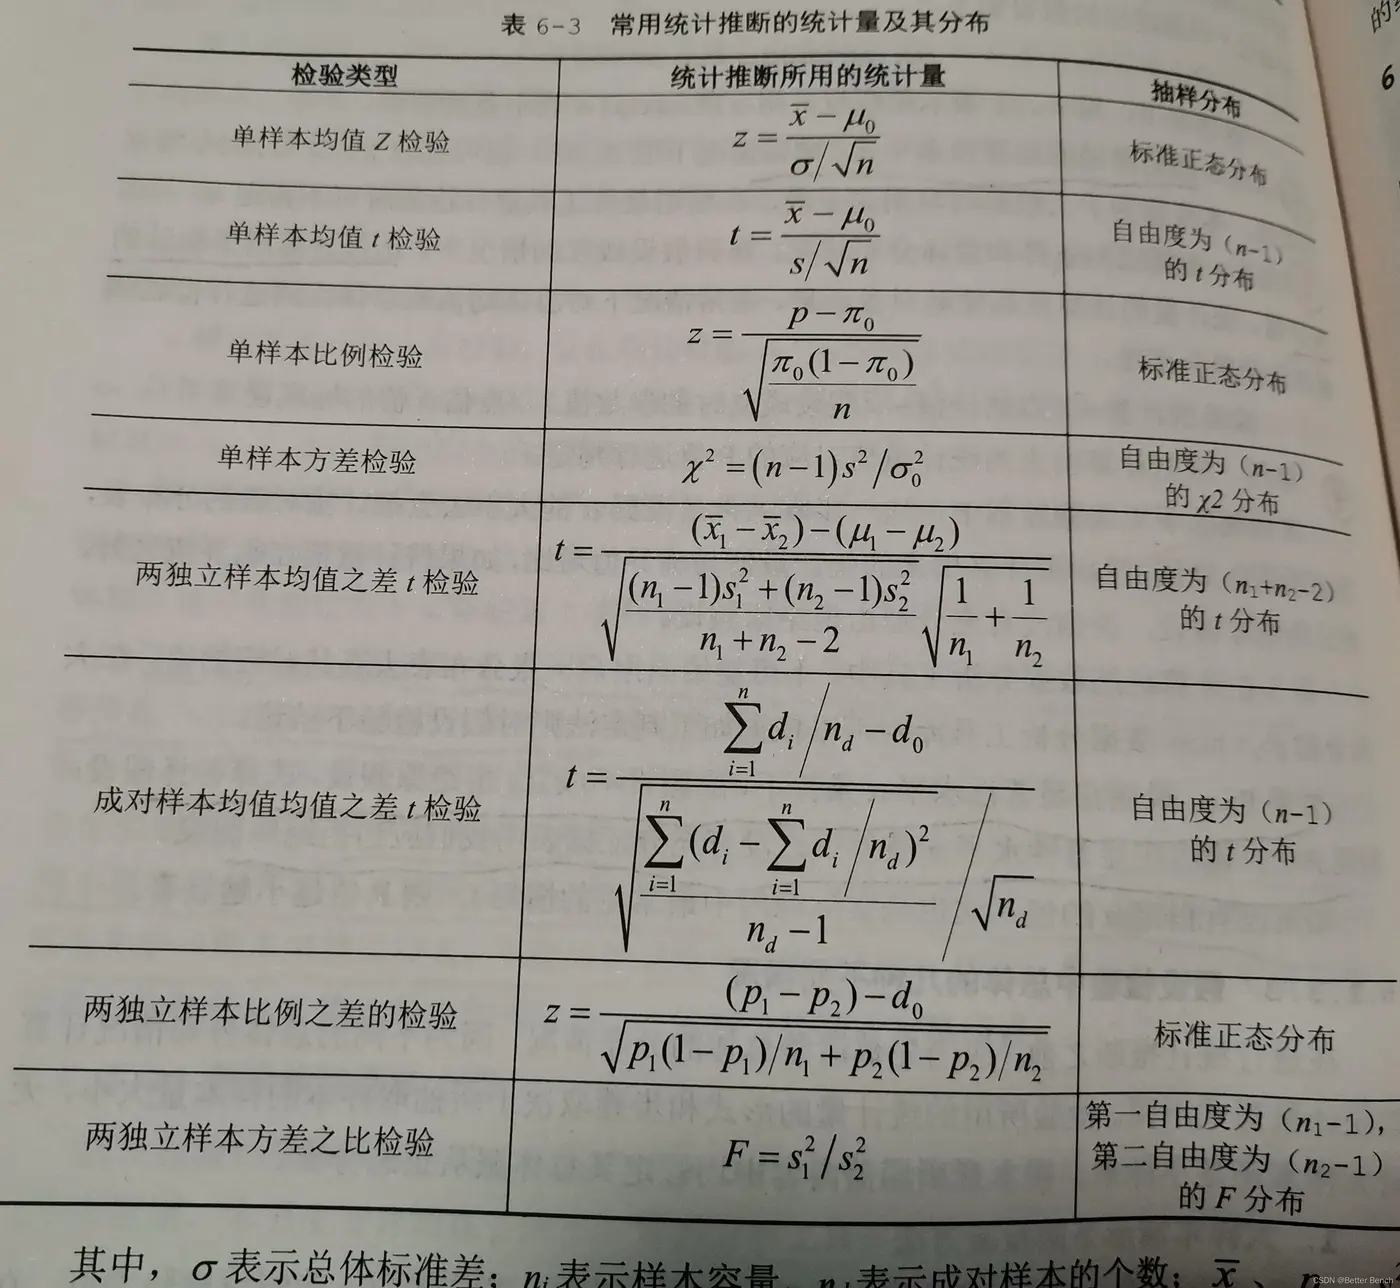 表 6-3 常用统计推断的统计量及其分布
检验类型 统计推断所用的统计量 抽样分布
单样本均值 Z 检验 z = (x̄ − μ₀) / (σ/√n) 标准正态分布
单样本均值 t 检验 t = (x̄ − μ₀) / (s/√n) 自由度为 (n-1)
的 t 分布
单样本比例检验 z = (p − π₀) / √(π₀(1 − π₀) / n) 标准正态分布
单样本方差检验 χ² = (n − 1)s²/σ₀² 自由度为 (n-1)
的 χ2 分布
两独立样本均值之差 t 检验 t = ((x̄₁ − x̄₂) − (μ₁ − μ₂)) / (√(((n₁ − 1)s₁² + (n₂ − 1)s₂²) / (n₁ + n₂ − 2)) √(1/n₁ + 1/n₂)) 自由度为 (n₁+n₂-2)
的 t 分布
成对样本均值均值之差 t 检验 t = (∑ᵢ₌₁ⁿ dᵢ / n_d − d₀) / (√(∑ᵢ₌₁ⁿ (dᵢ − ∑ᵢ₌₁ⁿ dᵢ / n_d)² / (n_d − 1)) / √n_d) 自由度为 (n-1)
的 t 分布
两独立样本比例之差的检验 z = ((p₁ − p₂) − d₀) / √(p₁(1 − p₁)/n₁ + p₂(1 − p₂)/n₂) 标准正态分布
两独立样本方差之比检验 F = s₁²/s₂² 第一自由度为 (n₁-1),
第二自由度为 (n₂-1)
的 F 分布
其中, σ 表示总体标准差; nᵢ 表示样本容量, n_d 表示成对样本的个数; x̄、
的
6
CSDN @Better Bench